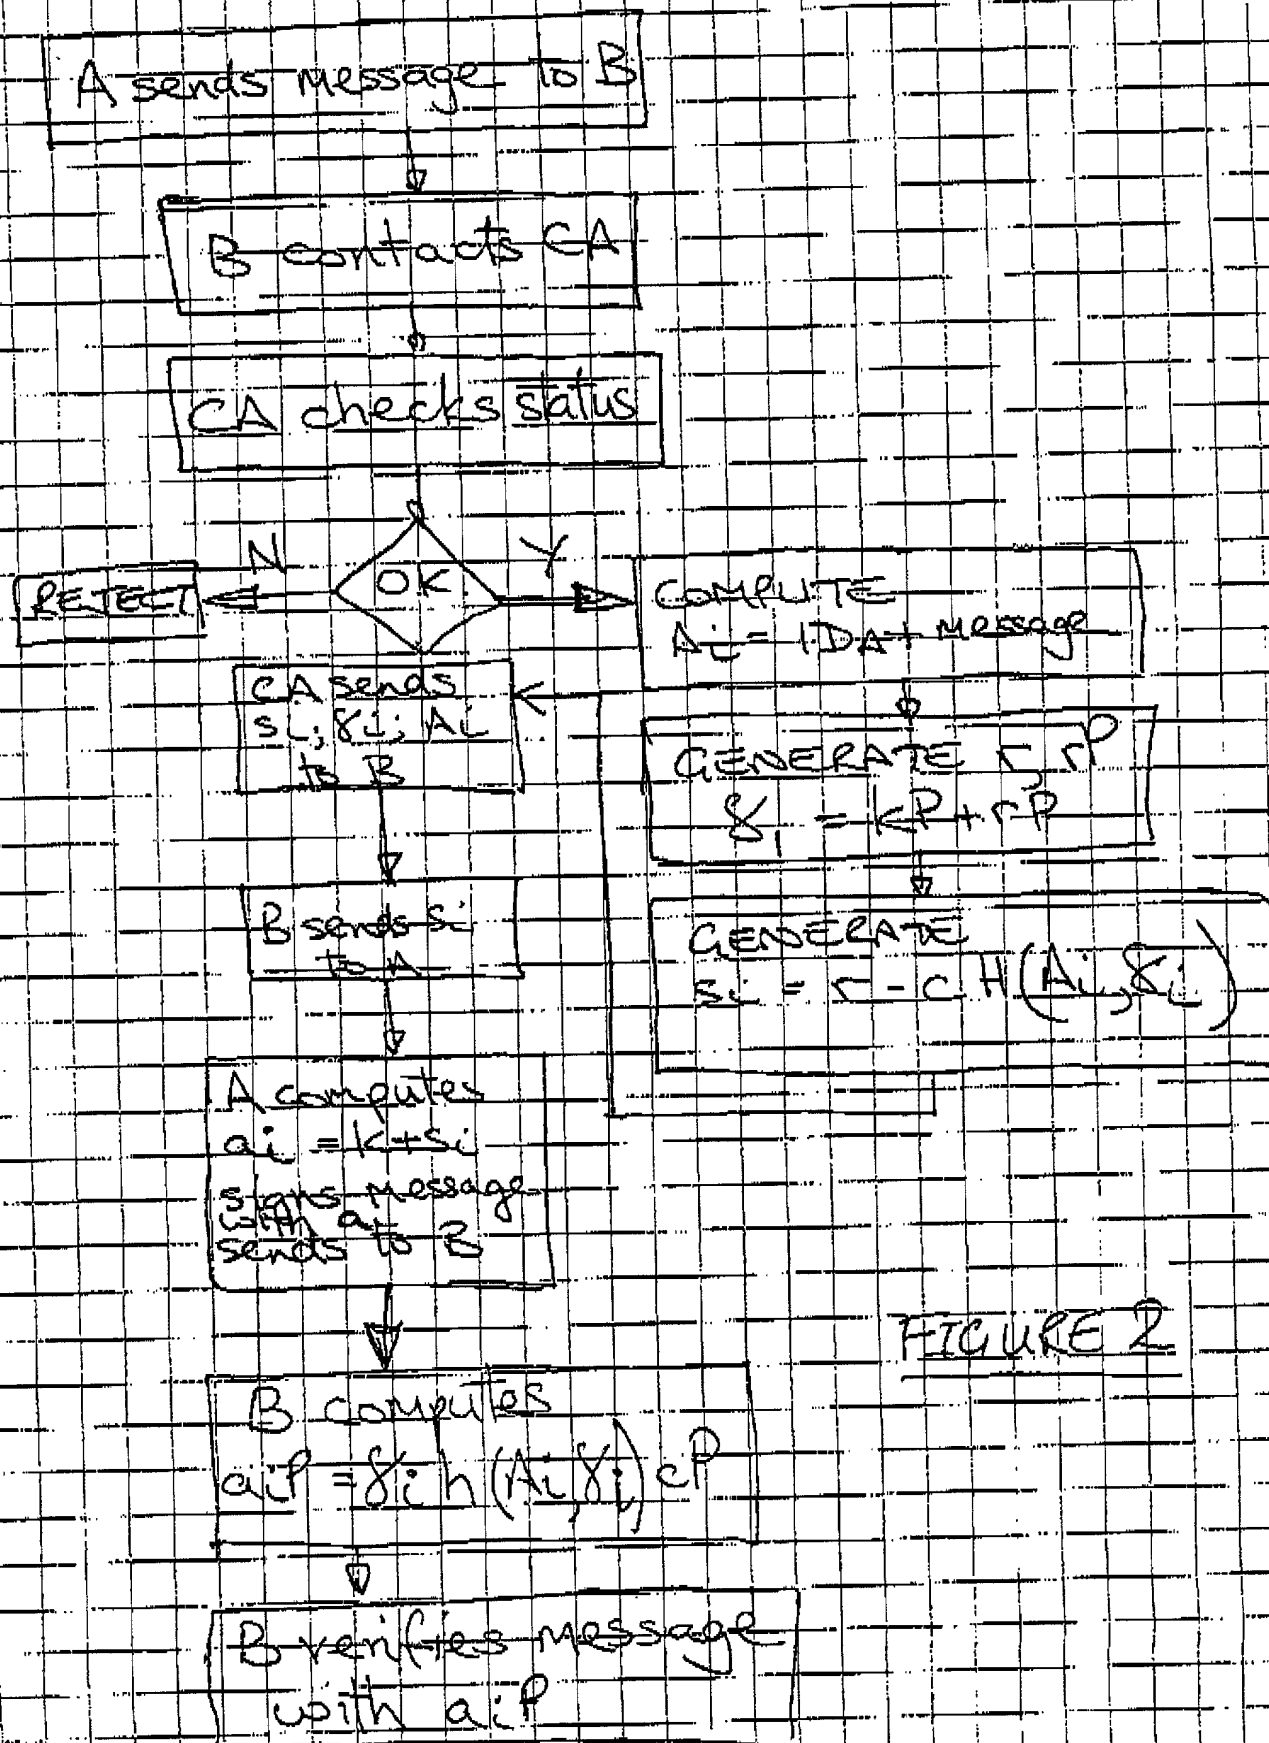 A sends message to B
B contacts CA
CA checks status
N
OK
Y
REJECT
COMPUTE
Ai = IDA + message
GENERATE r, rP
γi = kP + rP
GENERATE
si = r - c H(Ai, γi)
CA sends
si, γi, Ai
to B
B sends si
to A
A computes
ai = k + si
signs message
with ai
sends to B
B computes
aiP = γi h(Ai, γi) cP
B verifies message
with aiP
FIGURE 2